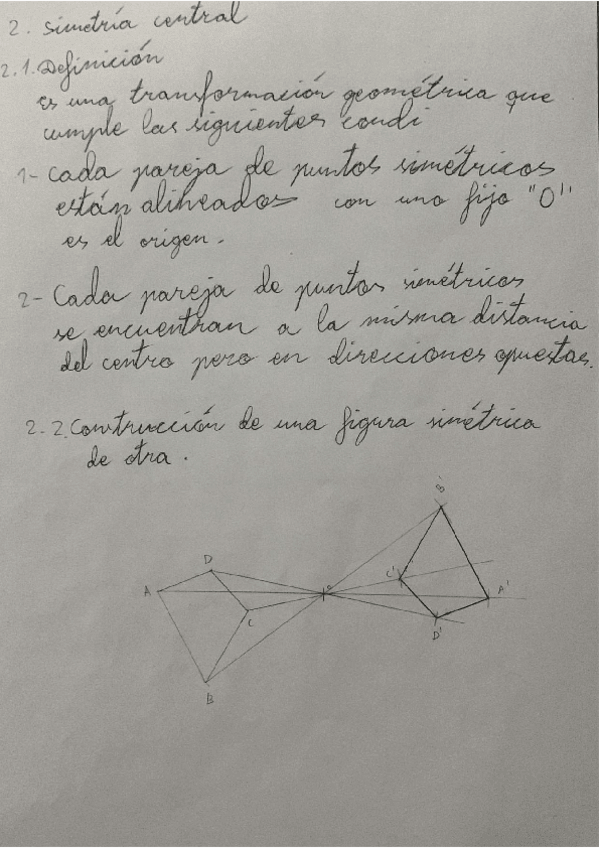 2. simetría central
2.1. Definición
es una transformación geométrica que
cumple las siguientes condi
1- Cada pareja de puntos simétricos
están alineados con uno fijo "O"
es el origen.
2- Cada pareja de puntos simétricos
se encuentran a la misma distancia
del centro pero en direcciones opuestas.
2.2. Construcción de una figura simétrica
de otra.
B'
D
O
C'
A
A'
C
D'
B